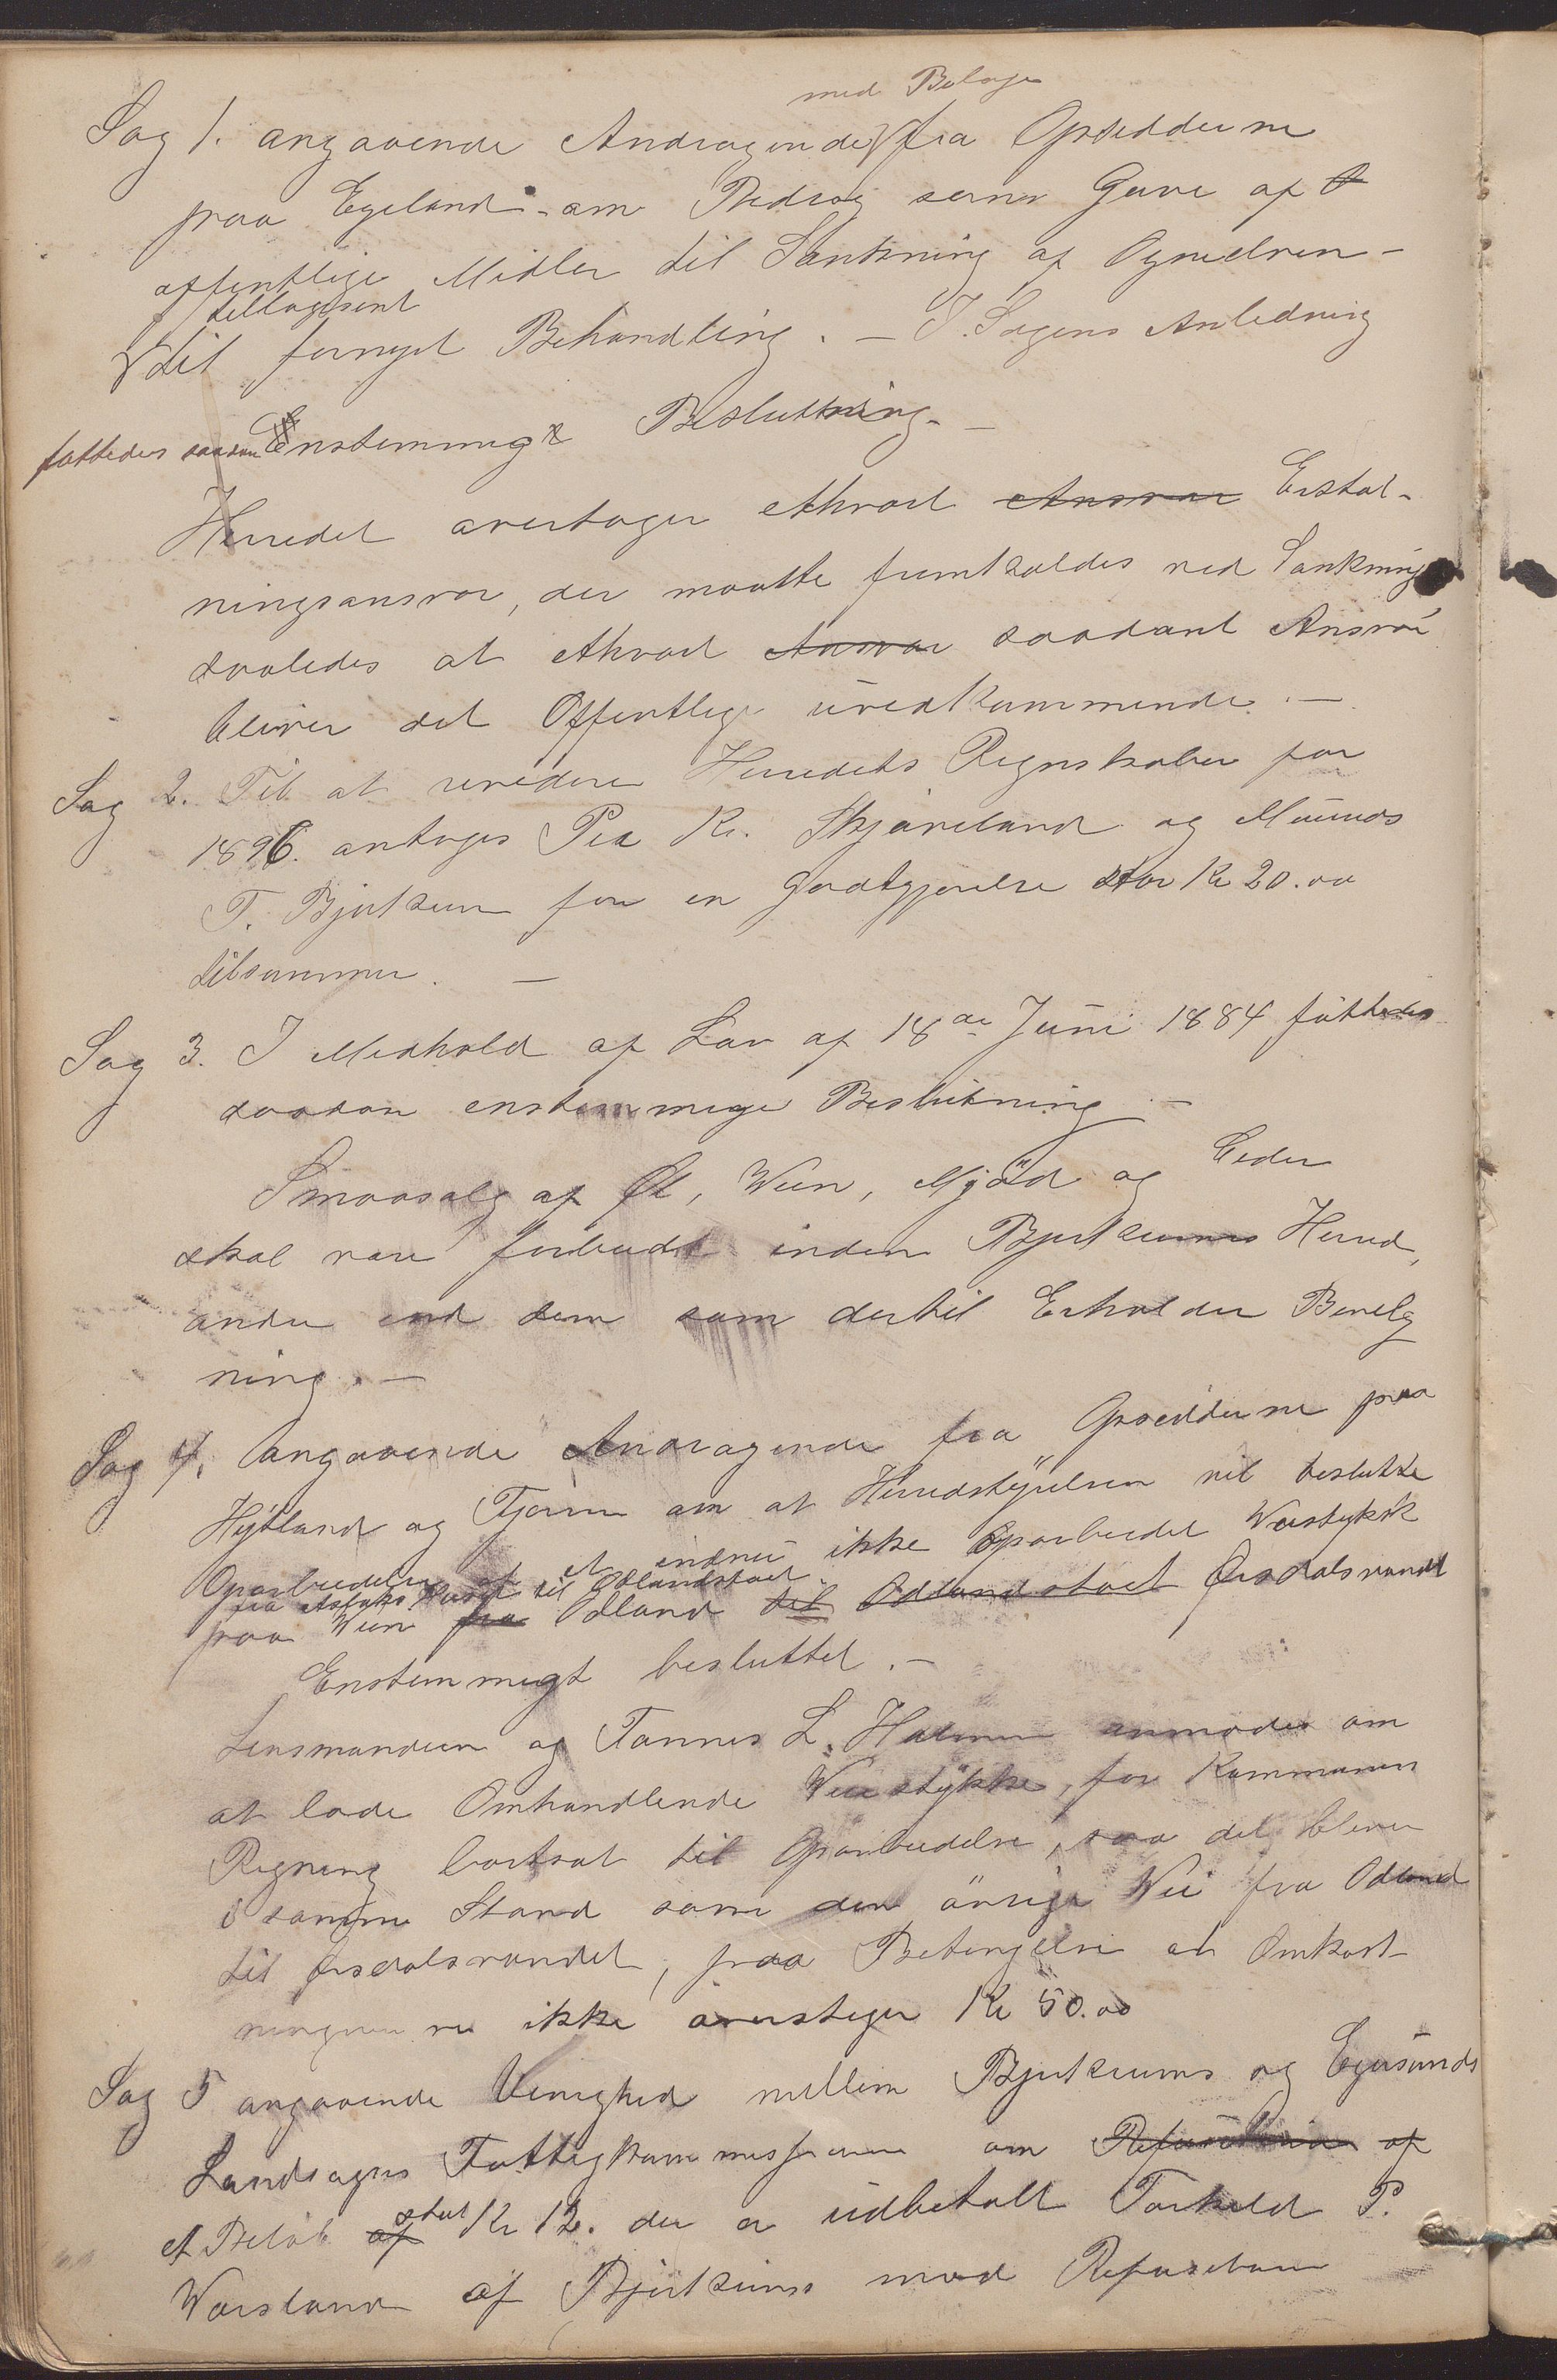 med Bilage
Sag 1. angaaende Andragende fra Opsidderne
paa Egeland om Bidrag som Gave af
offentlige Midler til Sænkning af Ognaelven –
tillagsent
til fornyet Behandling. – I Sagens Anledning
fattedes saadan Enstemmige Beslutning. –
Herredet overtager ethvert Ansvar Erstat-
ningsansvar, der maatte fremkaldes ved Sænkning
saaledes at ethvert Ansvar saadant Ansvar
bliver det Offentlige uvedkommende. –
Sag 2. Til at revidere Herredets Regnskaber for
1896. antages Per Kr. Skjæveland og Mauruds
T. Bjerkreim for en Godtgjørelse stor Kr 20.00
tilsammen. –
Sag 3. I Medhold af Lov af 18de Juni 1884 fattedes
saadan enstemmige Beslutning –
Smaasalg af Øl, Viin, Mjød og Ceder
skal være forbudt inden Bjerkreims Herred,
andre end dem som dertil Erholder Bevilg
ning. –
Sag 4. Angaaende Andragende fra Opsidderne paa
Hytland og Tjørn om at Herredstyrelsen vil beslutte
Oparbeidelse af et endnu ikke Oparbeidet Veistykke
fra Aslaks Huse til Ødlandstøet
paa Veien fra Ødland til Ødlandstøet Ørsdalsvandet
Enstemmigt besluttet. –
Lensmanden og Tønnes L. Hølmen anmodes om
at lade Omhandlende Veistykke, for Kommunens
Regning bortsat til Oparbeidelse, saa det bliver
i samme Stand som den øvrige Vei fra Ødland
til Ørsdalsvandet, paa Betingelse at Omkost-
ningerne ikke overstiger Kr 50.00
Sag 5 angaaende Uenighed mellem Bjerkreims og Egersunds
Landsogns Fattigkommissioner om Refusion af
et Beløb af stort Kr 12. der er udbetalt Torkeld P.
Versland af Bjerkreims mod Refusion